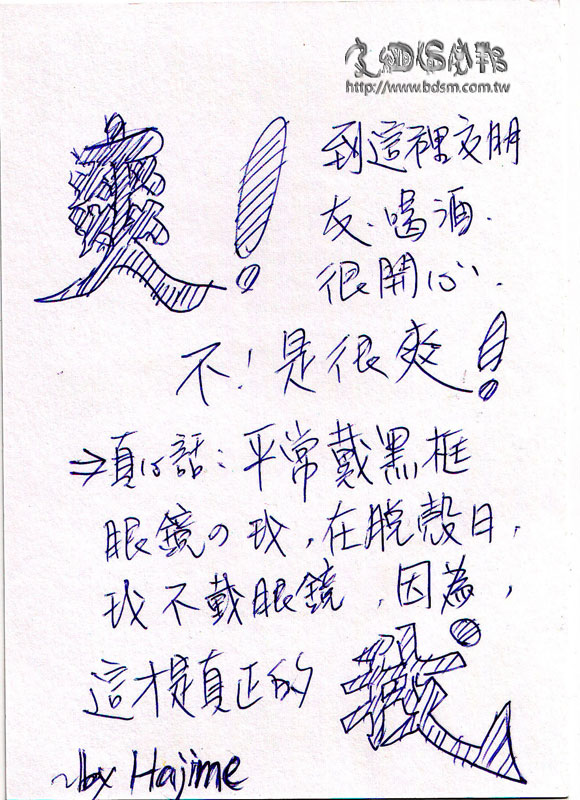 http://www.bdsm.com.tw
爽!
到這裡交朋
友、喝酒、
很開心、
不!是很爽!
⇒真心話:平常戴黑框
眼鏡の我,在脫殼日,
我不載眼鏡,因為,
這才是真正的我
~by Hajime